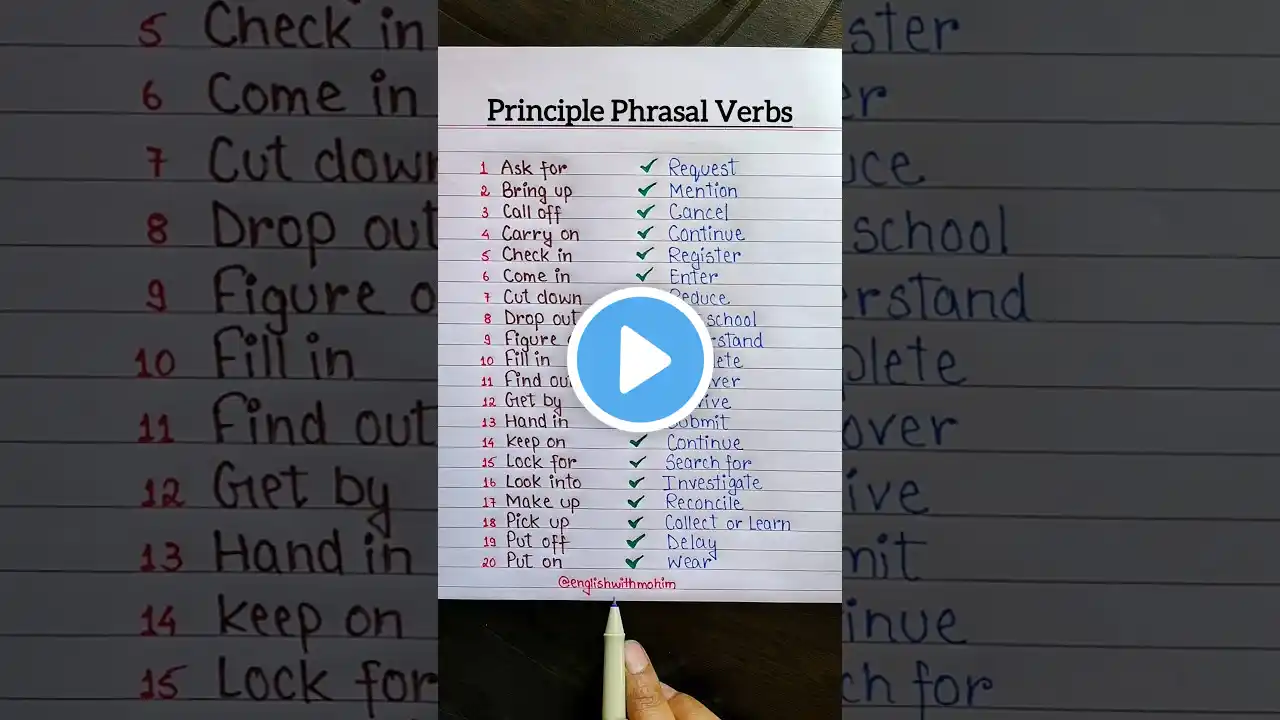 5 Check in
6 Come in
7 Cut down
8 Drop out
9 Figure o
10 Fill in
11 Find out
12 Get by
13 Hand in
14 keep on
15 Lock for
Principle Phrasal Verbs
1 Ask for ✓ Request
2 Bring up ✓ Mention
3 Call off ✓ Cancel
4 Carry on ✓ Continue
5 Check in ✓ Register
6 Come in ✓ Enter
7 Cut down Reduce
8 Drop out school
9 Figure rstand
10 Fill in lete
11 Find ou ver
12 Get by ive
13 Hand in Submit
14 keep on ✓ Continue
15 Lock for ✓ Search for
16 Look into ✓ Investigate
17 Make up ✓ Reconcile
18 Pick up ✓ Collect or Learn
19 Put off ✓ Delay
20 Put on ✓ Wear
@englishwithmohim
ster
er
uce
school
rstand
plete
over
ive
mit
inue
ch for